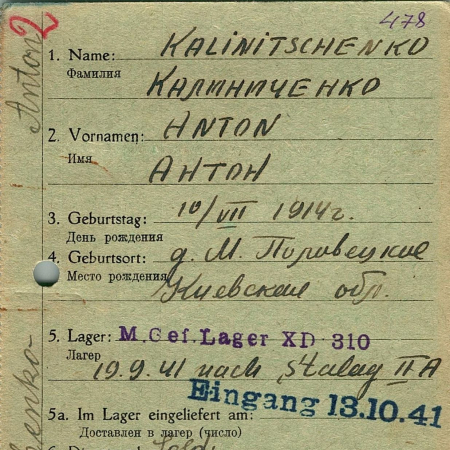 478
2
Anton
1. Name: KALINITSCHENKO
Фамилия
КАЛИНИЧЕНКО
2. Vornamen: ANTON
Имя
АНТОН
3. Geburtstag: 10/VII 1914г.
День рождения
4. Geburtsort: д. М. Пировецкие
Место рождения
Киевская обр.
5. Lager: M.Gef.Lager XD 310
Лагер
19.9.41 nach Stalag II A
Eingang 13.10.41
5a. Im Lager eingeliefert am:
Доставлен в лагер (число)
enko-